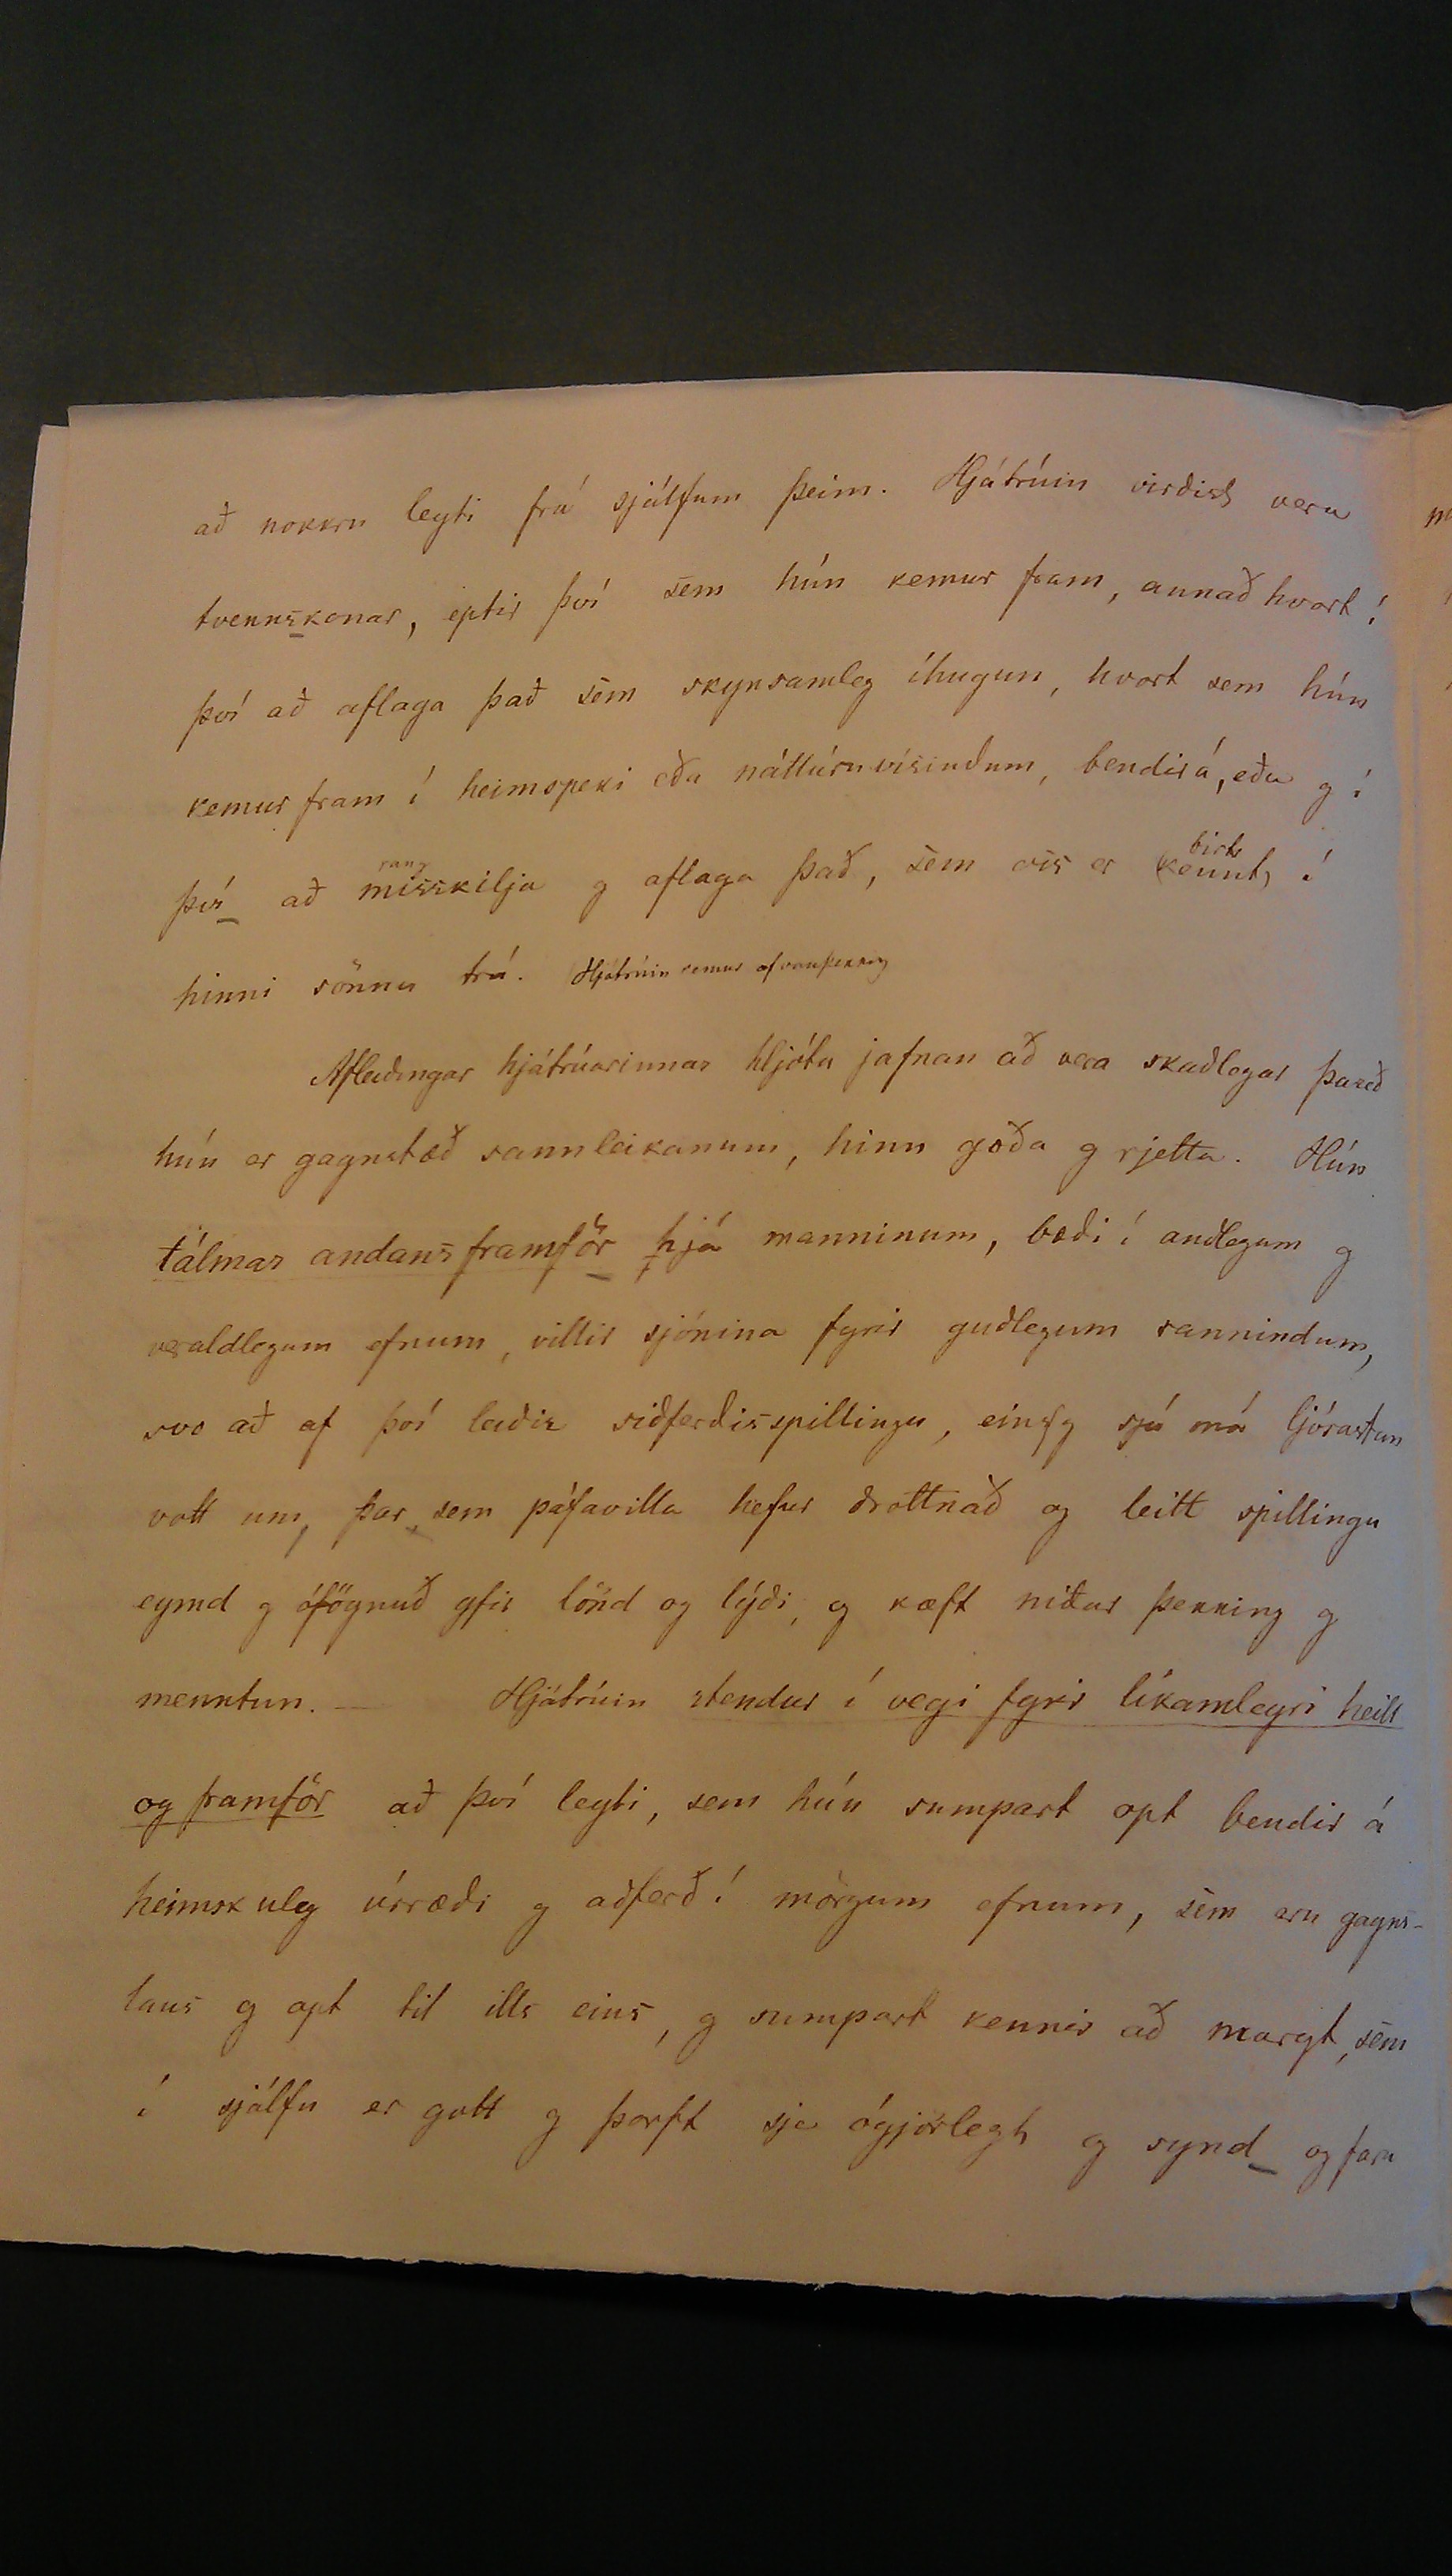 að nokkru leyti frá sjálfum þeim. Hjátrúin virðist vera
tvennskonar, eptir því sem hún kemur fram, annaðhvort í
því að aflaga það sem skynsamleg íhugun, hvort sem hún
kemur fram í heimspeki eða náttúruvísindum, bendir á, eða g í
rang birt
því að misskilja g aflaga það, sem oss er (kennt) í
hinni sönnu trú. Hjátrúin kemur af vanþekking
Afleiðingar hjátrúarinnar hljóta jafnan að vera skaðlegar þareð
hún er gagnstæð sannleikanum, hinu góða g rjetta. Hún
tálmar andans framför hjá manninum, bæði í andlegum g
veraldlegum efnum, villir sjónina fyrir guðlegum sannindum,
svo að af því leiðir siðferðisspillingu, eins g sjá má ljósastan
vott um, þar sem páfavilla hefur drottnað og leitt spillingu
eymd g ófögnuð yfir lönd og lýði, g kæft niður þekking g
menntun. — Hjátrúin stendur í vegi fyrir líkamlegri heill
og framför að því leyti, sem hún sumpart opt bendir á
heimskuleg úrræði g aðferð í mörgum efnum, sem eru gagns-
laus g opt til ills eins, g sumpart kennir að margt, sem
í sjálfu er gott g þarft sje ógjörlegt g synd og fara